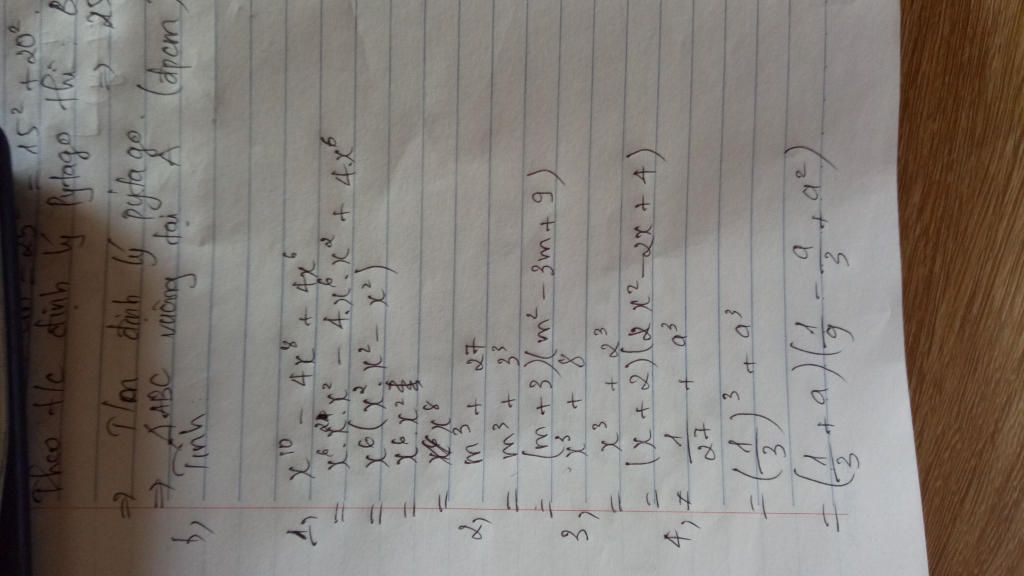 = 15² + 20²
Theo t/c định lý pytago thì B
⇒ T/m định lý pytago. ⇒ 25
⇒ ΔABC vuông tại A (đpcm)
b, Tính:
1, x¹⁰ - 4x⁸ + 4x⁶
= x⁶.x².x² - 4.x⁶.x² + 4x⁶
= x⁶(x².x² - x²)
= x⁶x²
= x⁸
2, m³ + 27
= m³ + 3³
= (m + 3)(m² - 3m + 9)
3, x³ + 8
= x³ + 2³
= (x + 2)(x² - 2x + 4)
4, 1/27 + a³
= (1/3)³ + a³
= (1/3 + a)(1/9 - a/3 + a²)